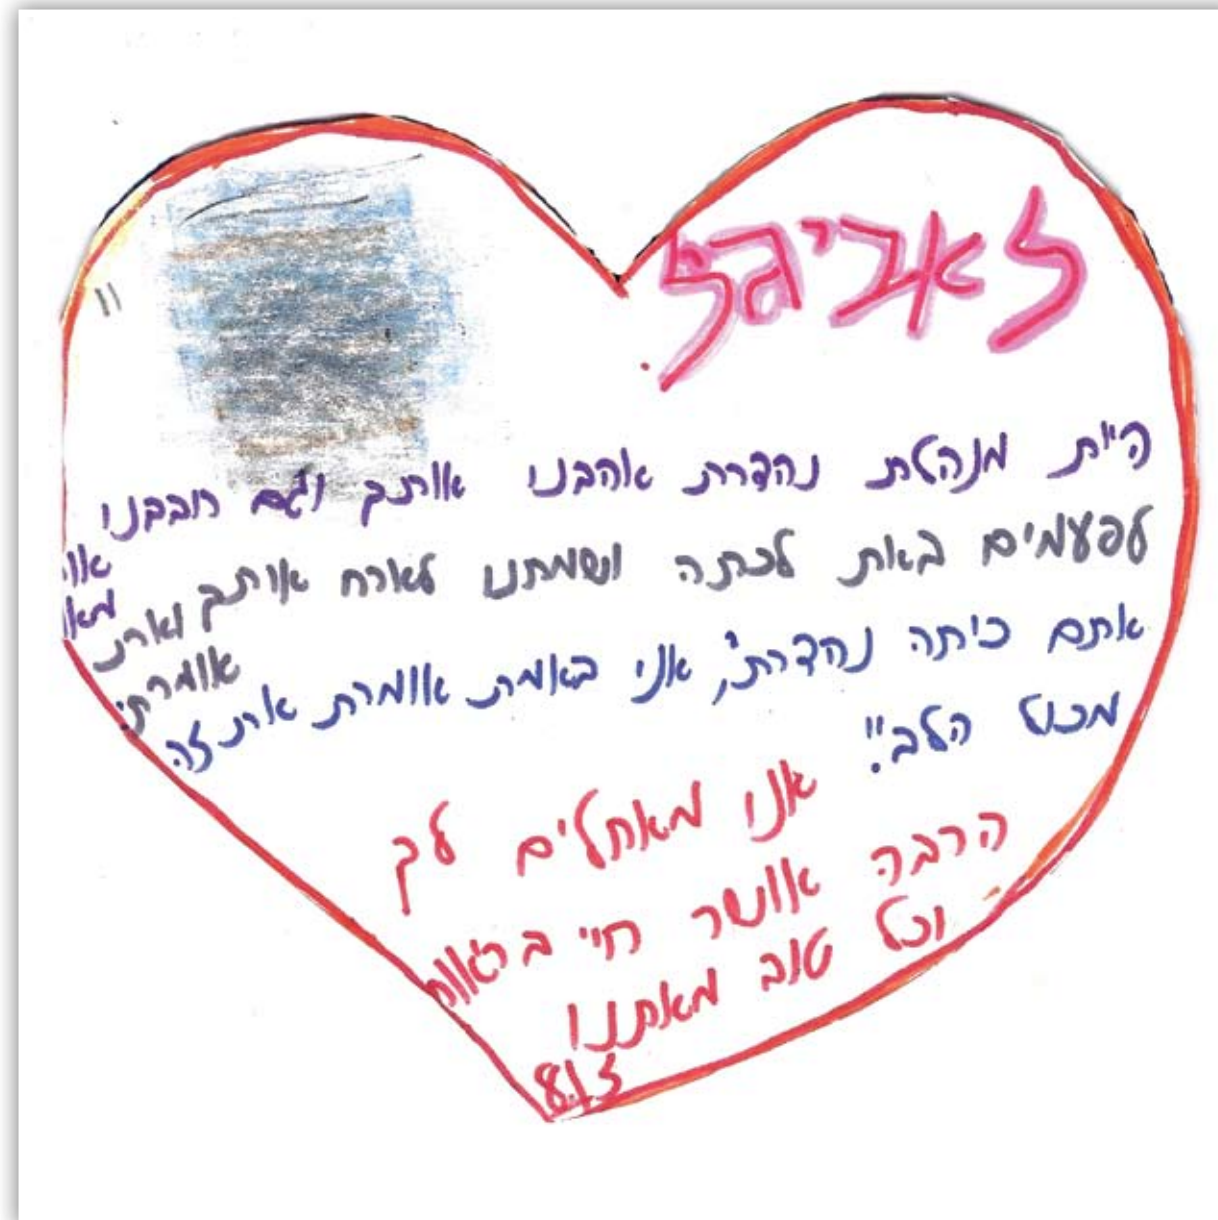 לאביגל
היית מנהלת נהדרת אהבנו אותך וגם רובבנו
מאו
לפעמים באת לכתה ושמחנו לארח אותך ואת
אומרת:
אתם כיתה נהדרת", אני באמת אומרת את זה
מכול הלב!"
אנו מאחלים לך
הרבה אושר חיי בריאות
וכל טוב מאתנו